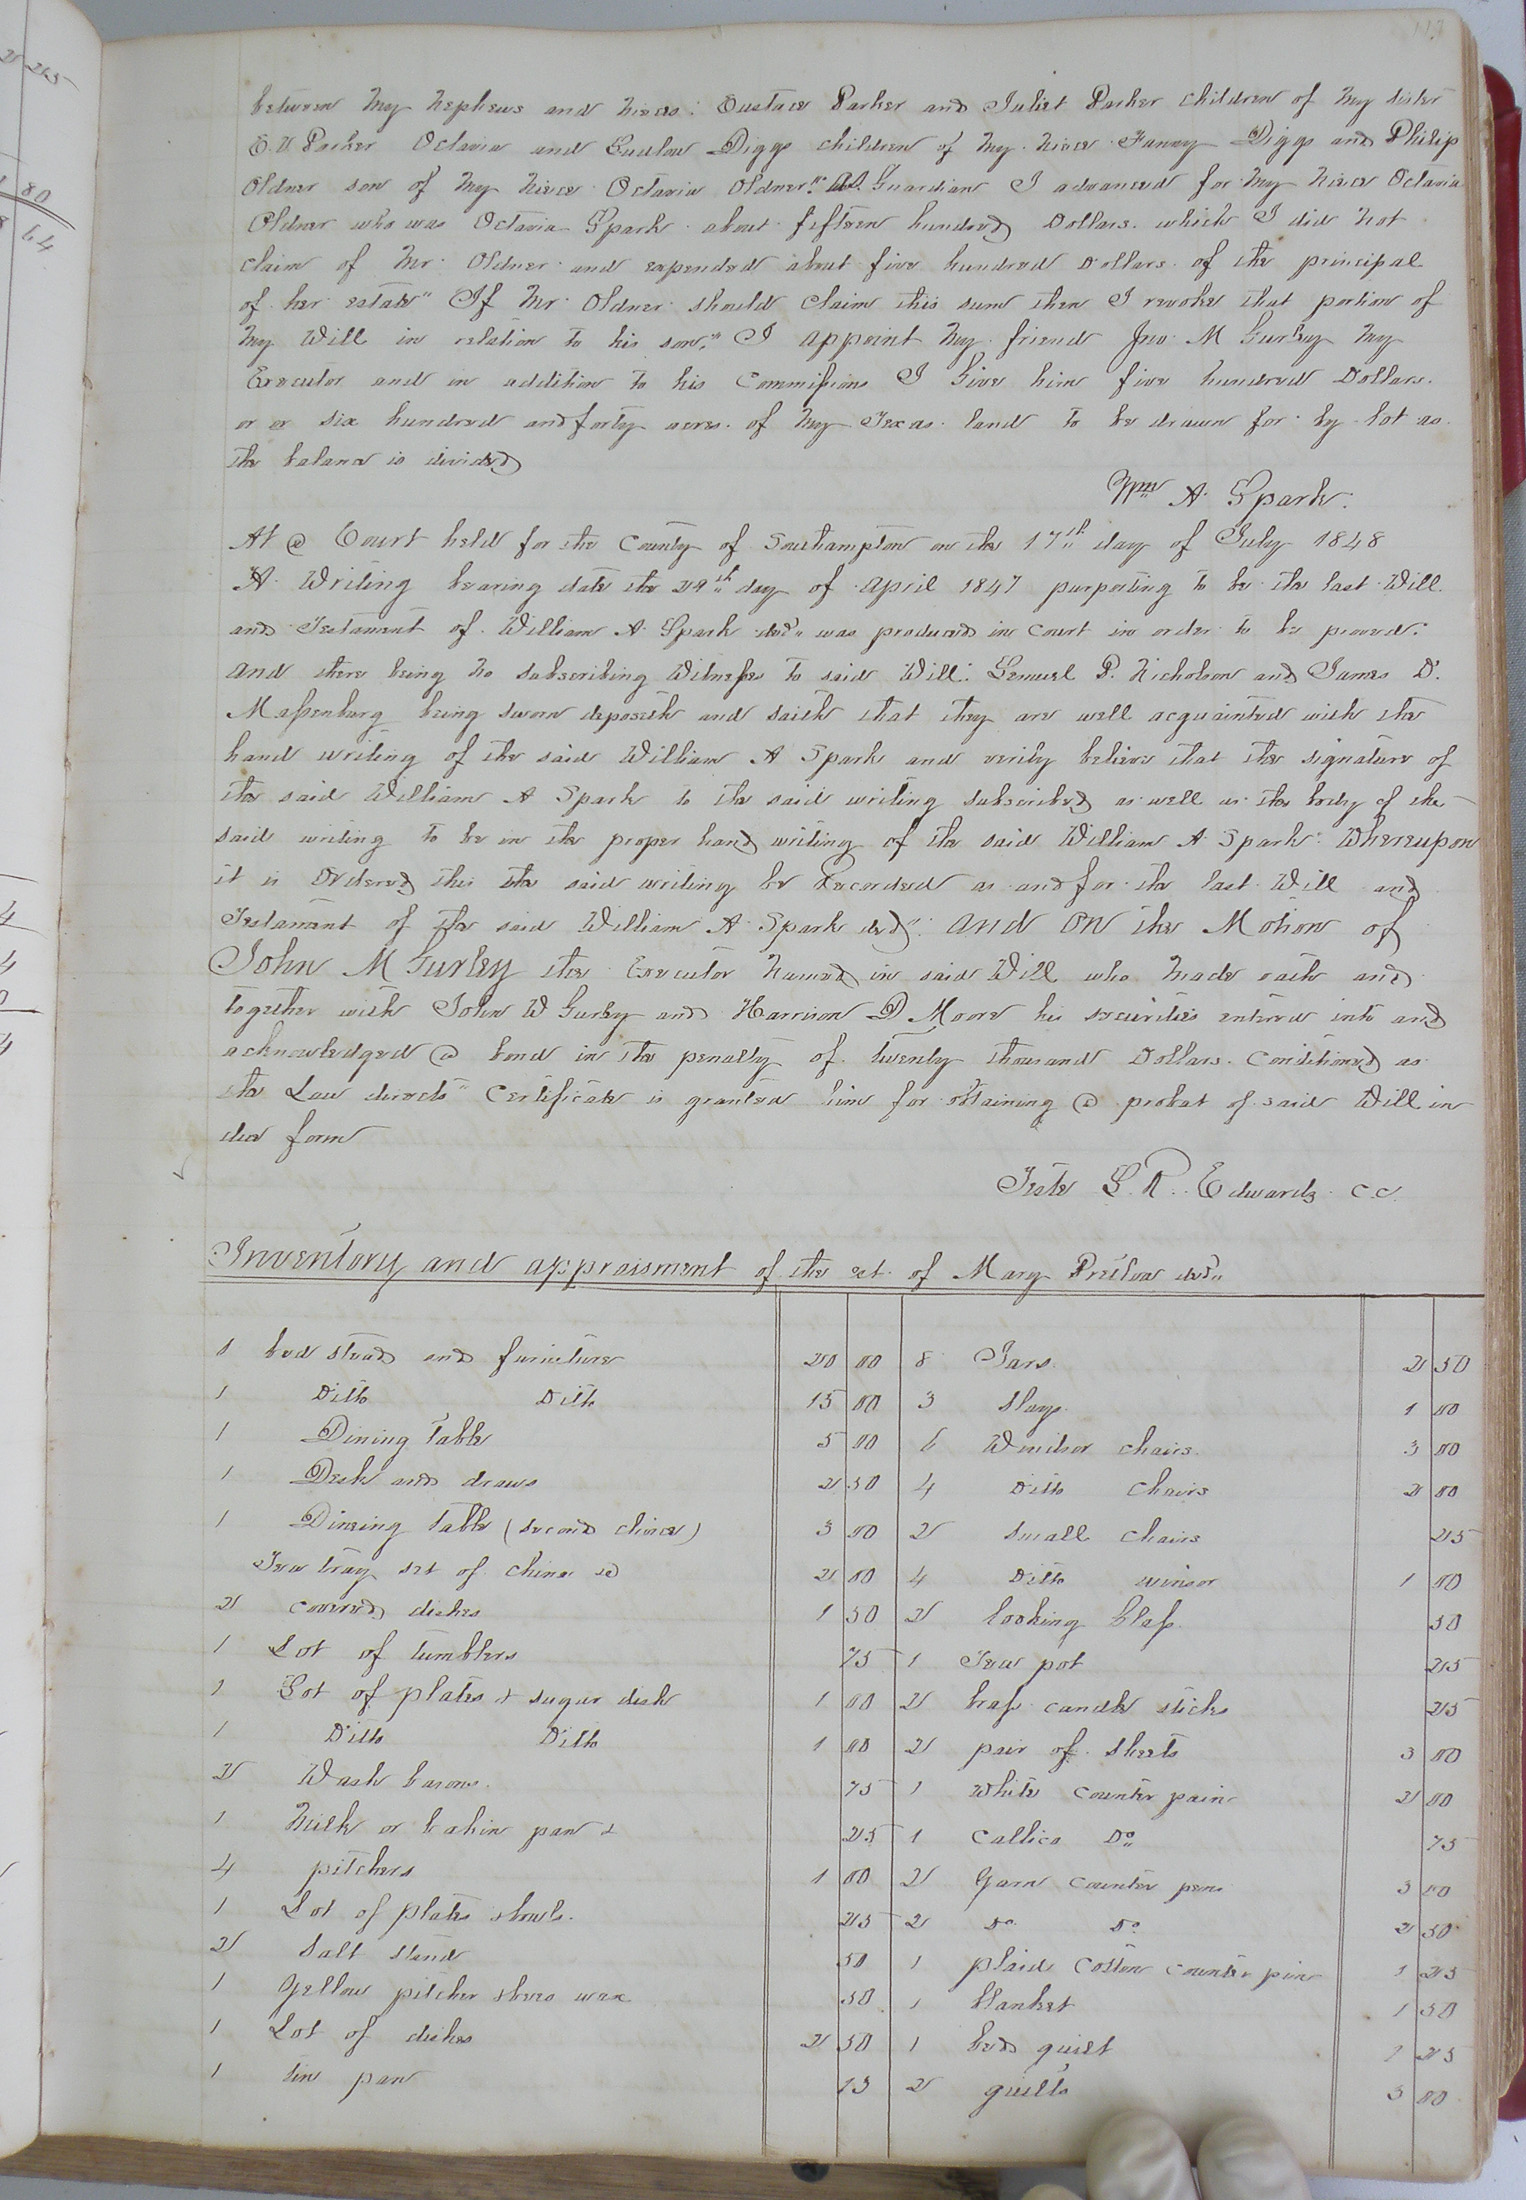 113
between my nephews and nieces: Eustace Parker and Juliet Parker children of my sister
E. V. Parker Octavia and Ludlow Diggs children of my niece Fanny Diggs and Philip
Oldner son of my niece Octavia Oldner" As Guardian I advanced for my niece Octavia
Oldner who was Octavia Spark about fifteen hundred Dollars which I did not
claim of Mr Oldner and expended about five hundred Dollars of the principal
of her estate" If Mr Oldner should claim this sum then I revoke that portion of
my Will in relation to his son." I appoint my friend Jno M Gurley my
Executor and in addition to his Commissions I Give him five hundred Dollars.
or or six hundred and forty acres of my Texas land to be drawn for by lot as
the balance is divided
Wm A. Spark.
At a Court held for the County of Southampton on the 17th day of July 1848
A Writing bearing date the 29th day of April 1847 purporting to be the last Will
and Testament of William A Spark decd was produced in Court in order to be proved:
and there being no subscribing Witnesses to said Will: Lemuel P. Nicholson and James D.
Massenburg being sworn deposeth and saith that they are well acquainted with the
hand writing of the said William A Spark and verily believe that the signature of
the said William A Spark to the said writing subscribed as well as the body of the
said writing to be in the proper hand writing of the said William A Spark: Whereupon
it is Ordered this the said writing be Recorded as and for the last Will and
Testament of the said William A Spark decd: and on the Motion of
John M Gurley the Executor named in said Will who made oath and
together with John W Gurley and Harrison D Moore his securities entered into and
acknowledged a bond in the penalty of twenty thousand Dollars conditioned as
the Law directs" Certificate is granted him for obtaining a probat of said Will in
due form
Teste L. R. Edwards C C
Inventory and appraisment of the est of Mary Pretlow decd
1 bed stead and furniture 20 00 8 Jars 2 50
1 Ditto Ditto 15 00 3 Slays 1 00
1 Dining Table 5 00 6 Windsor chairs 3 00
1 Desk and draws 2 50 4 Ditto Chairs 2 00
1 Dineing Table (second choice) 3 00 2 small chairs 25
Tea tray set of china 2 00 4 Ditto winsor 1 00
2 covered dishes 1 50 2 looking Glass 50
1 Lot of tumblers 75 1 Tea pot 25
1 Lot of plates & sugar dish 1 00 2 brass candle sticks 25
1 Ditto Ditto 1 00 2 pair of sheets 3 00
2 Wash basons 75 1 White counter pain 2 00
1 Milk or bakin pan & 25 1 Callico Do 75
4 pitchers 1 00 2 Yarn counter pens 3 00
1 Lot of plates & bowls 25 2 Do Do 2 50
2 Salt stand 50 1 plaid cotton counter pin 1 25
1 Yellow pitcher & bees wax 50 1 blanket 1 50
1 Lot of dishes 2 50 1 bed quilt 1 25
1 tin pan 13 2 quilts 3 00